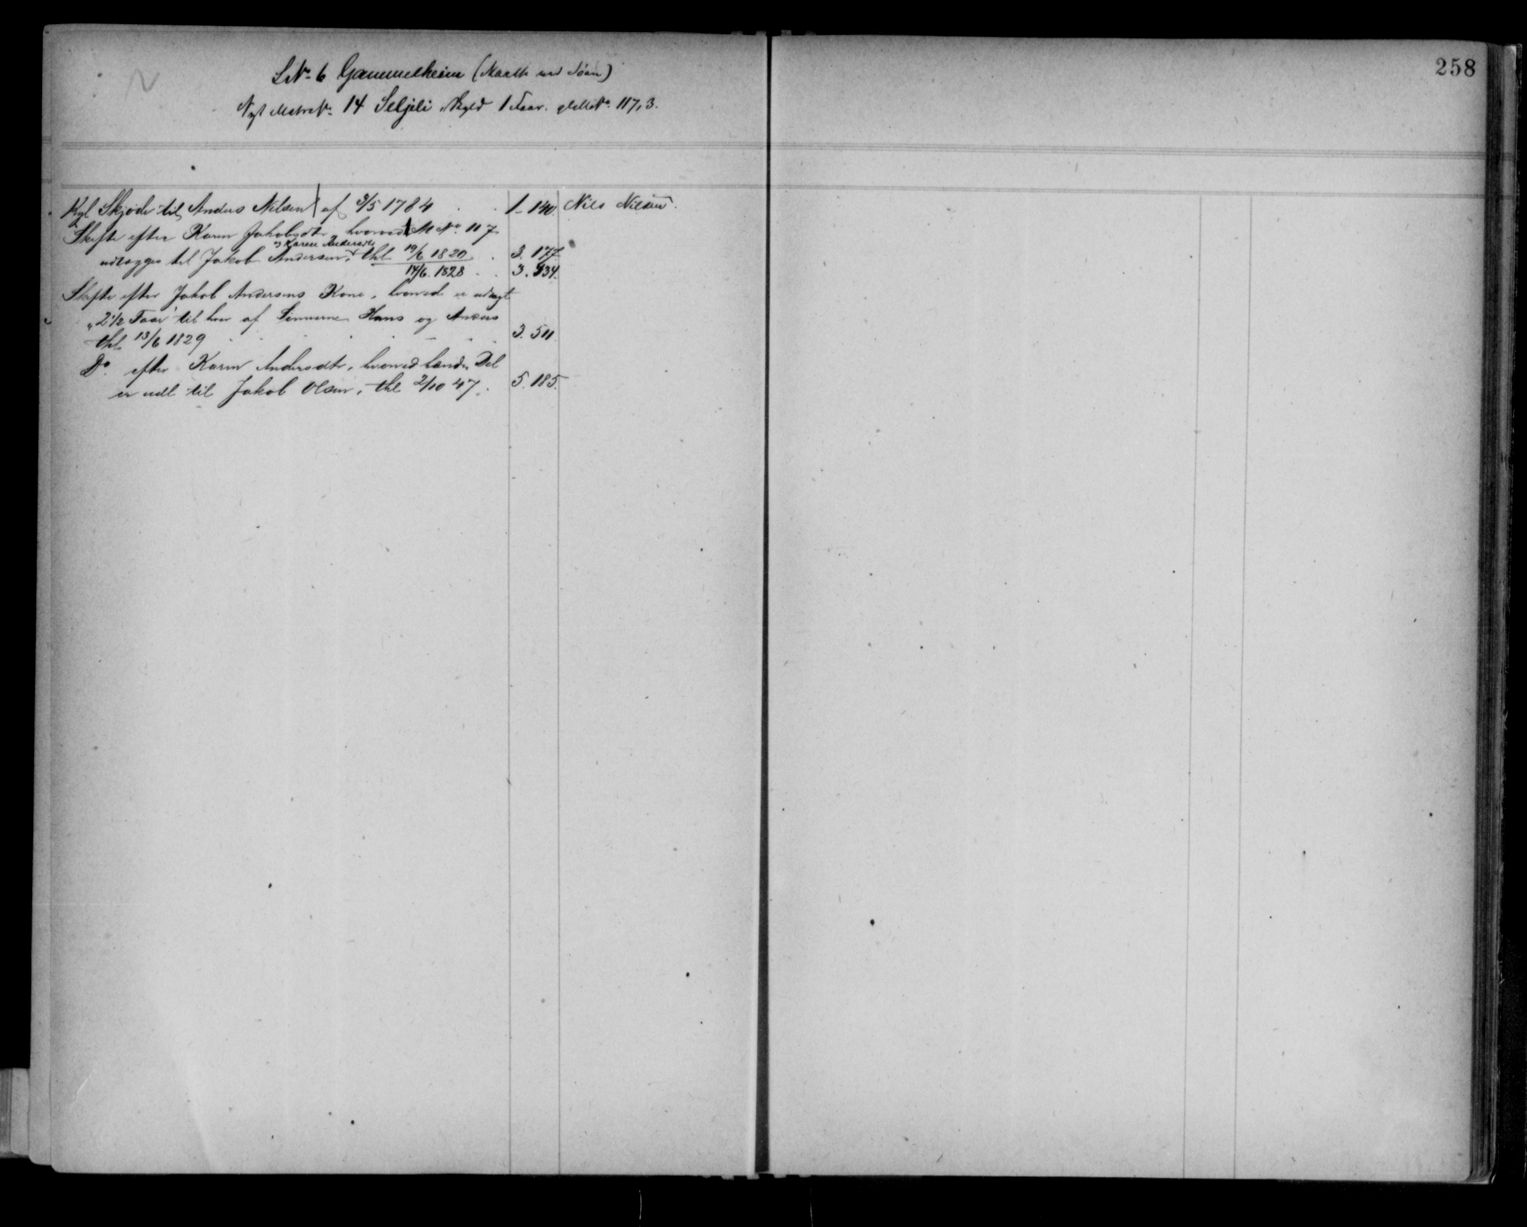 258
L№ 6 Gammelheim (Maalt ved Søen)
Nyt Matr№ 14 Seljeli skyld 1 Faar. gl M№ 117,3.
Kgl Skjøde til Anders Nilsen af 3/5 1784 . . 1. 140 Nils Nilsen.
Skifte efter Karen Jakobsdtr, hvorved M№ 117
og Karen Andersdtr
udlægges til Jakob Andersen, thl 19/6 1820 . 3. 177
14/6 1828 . . 3. 534
Skifte efter Jakob Andersens Kone, hvorved er udlagt
2 1/2 Faar til hver af Sønnerne Hans og Anders
thl 13/6 1829 . . . . 3. 511
Do. efter Karen Andersdtr, hvorved hendes Del
er udl til Jakob Olsen, thl 2/10 47. 5. 185.